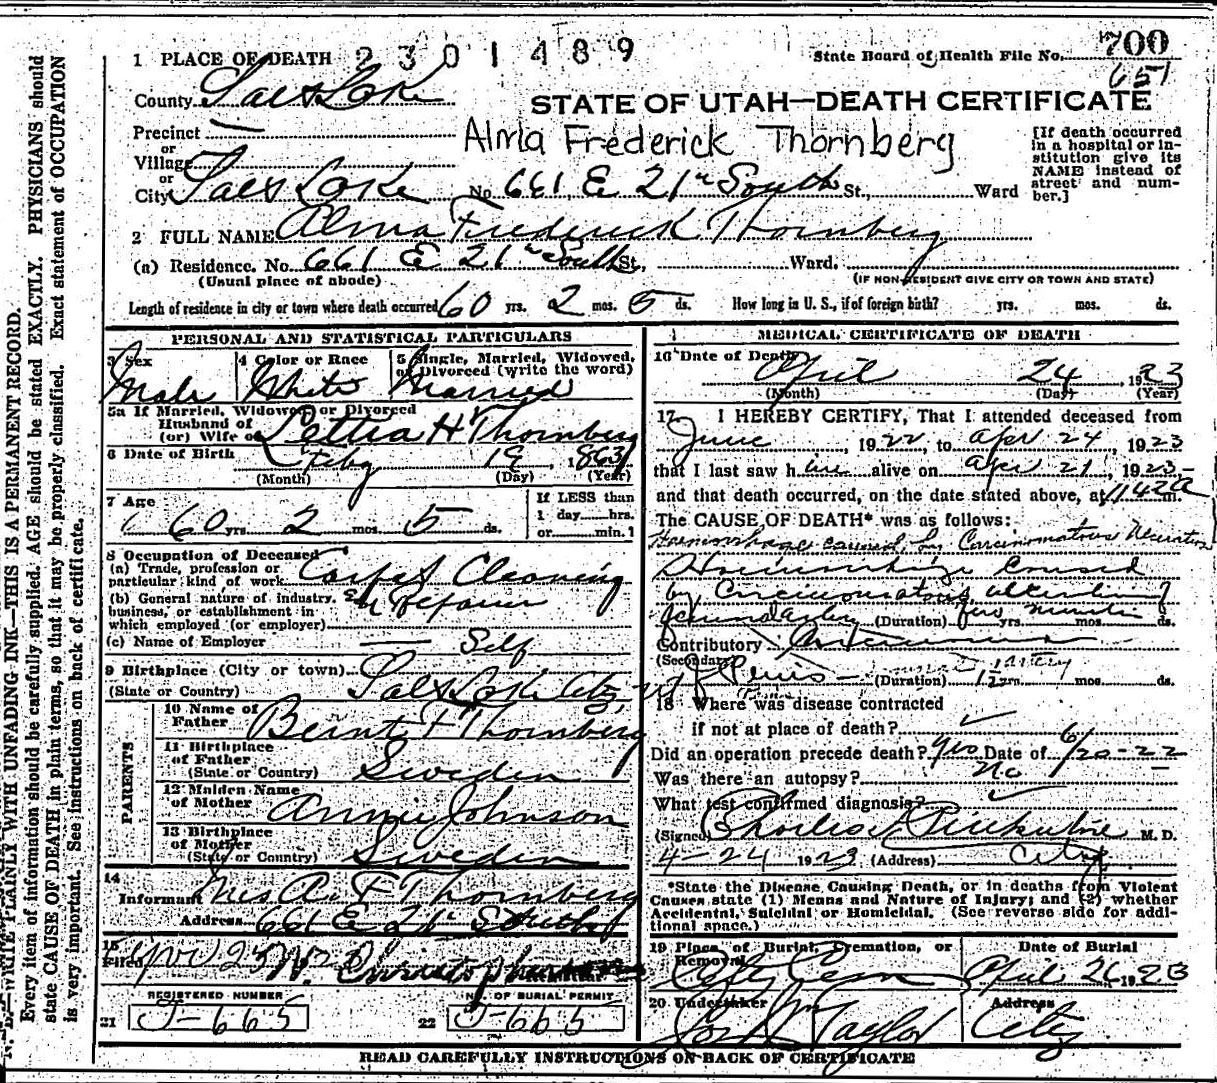 1 PLACE OF DEATH 2301489
State Board of Health File No. 700
651
County Salt Lake
STATE OF UTAH—DEATH CERTIFICATE
Precinct
or
Village
or
Alma Frederick Thornberg
[If death occurred in a hospital or institution give its NAME instead of street and number.]
City Salt Lake No. 661 E 21st South St., Ward
2 FULL NAME Alma Frederick Thornberg
(a) Residence. No. 661 E 21st South St., Ward.
(Usual place of abode) (IF NON-RESIDENT GIVE CITY OR TOWN AND STATE)
Length of residence in city or town where death occurred 60 yrs. 2 mos. 5 ds. How long in U. S., if of foreign birth? yrs. mos. ds.
PERSONAL AND STATISTICAL PARTICULARS
3 Sex 4 Color or Race 5 Single, Married, Widowed, or Divorced (write the word)
Male White Married
5a If Married, Widowed, or Divorced
Husband of
(or) Wife of Lettia H Thornberg
6 Date of Birth Feby 19 1863
(Month) (Day) (Year)
7 Age If LESS than
1 day hrs.
60 yrs. 2 mos. 5 ds. or min.
8 Occupation of Deceased
(a) Trade, profession or
particular kind of work Carpet Cleaning
(b) General nature of industry,
business, or establishment in
which employed (or employer)
(c) Name of Employer Self
9 Birthplace (City or town) Salt Lake City,
(State or Country)
PARENTS
10 Name of
Father Bernt Thornberg
11 Birthplace
of Father
(State or Country) Sweden
12 Maiden Name
of Mother Annie Johnson
13 Birthplace
of Mother
(State or Country) Sweden
14
Informant Mrs A F Thornberg
Address 661 E 21st South
15
Filed 25
Registrar
REGISTERED NUMBER NO. OF BURIAL PERMIT
21 J-665 22 J-665
MEDICAL CERTIFICATE OF DEATH
16 Date of Death April 24 1923
(Month) (Day) (Year)
17 I HEREBY CERTIFY, That I attended deceased from
June, 1922, to Apr 24, 1923
that I last saw him alive on Apr 21, 1923
and that death occurred, on the date stated above, at m.
The CAUSE OF DEATH* was as follows:
Haemorrhage caused by Carcinomatous
caused
by
(Duration) yrs. mos. ds.
Contributory
(Secondary)
Penis (Duration) yrs. mos. ds.
18 Where was disease contracted
if not at place of death?
Did an operation precede death? yes Date of 6/20-22
Was there an autopsy? No
What test confirmed diagnosis?
(Signed) M. D.
4-24 1923 (Address) City
*State the Disease Causing Death, or in deaths from Violent
Causes state (1) Means and Nature of Injury; and (2) whether
Accidental, Suicidal or Homicidal. (See reverse side for additional space.)
19 Place of Burial, Cremation, or Removal Date of Burial
City Cem April 26 1923
20 Undertaker Address
Taylor City
READ CAREFULLY INSTRUCTIONS ON BACK OF CERTIFICATE
N. B.—WRITE PLAINLY WITH UNFADING INK—THIS IS A PERMANENT RECORD.
Every item of information should be carefully supplied. AGE should be stated EXACTLY. PHYSICIANS should
state CAUSE OF DEATH in plain terms, so that it may be properly classified. Exact statement of OCCUPATION
is very important. See instructions on back of certificate.